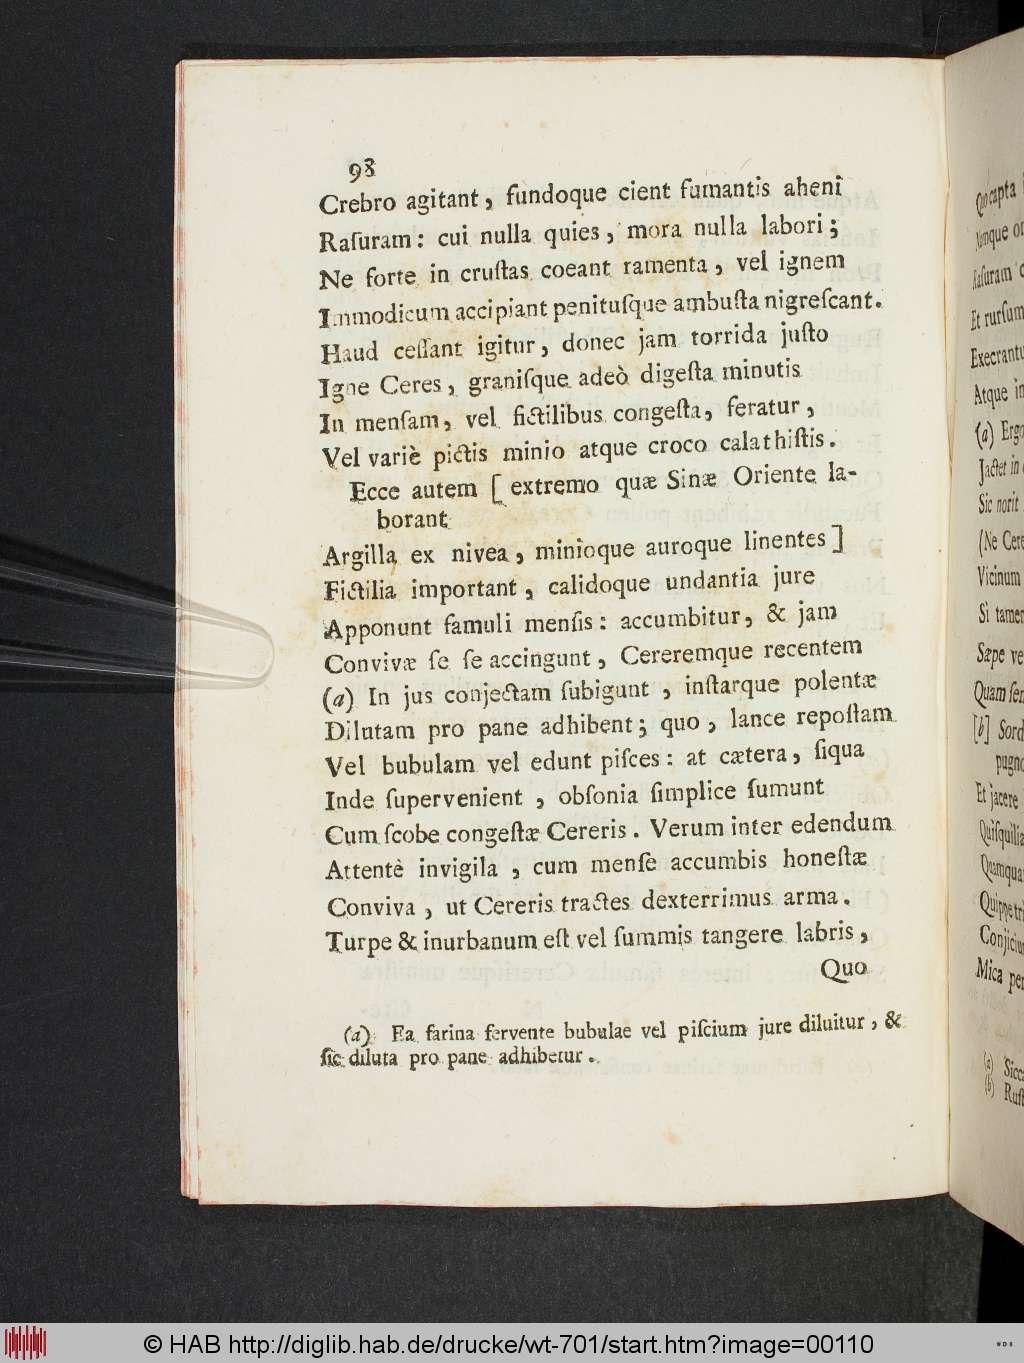 98
Crebro agitant, fundoque cient fumantis aheni
Raſuram: cui nulla quies, mora nulla labori;
Ne forte in cruſtas coeant ramenta, vel ignem
Immodicum accipiant penituſque ambuſta nigreſcant.
Haud ceſſant igitur, donec jam torrida juſto
Igne Ceres, graniſque adeò digeſta minutis
In menſam, vel fictilibus congeſta, feratur,
Vel variè pictis minio atque croco calathiſtis.
Ecce autem [ extremo quæ Sinæ Oriente la-
borant
Argilla ex nivea, minioque auroque linentes ]
Fictilia important, calidoque undantia jure
Apponunt famuli menſis: accumbitur, & jam
Convivæ ſe ſe accingunt, Cereremque recentem
(a) In jus conjectam ſubigunt, inſtarque polentæ
Dilutam pro pane adhibent; quo, lance repoſtam
Vel bubulam vel edunt piſces: at cætera, ſiqua
Inde ſupervenient, obſonia ſimplice ſumunt
Cum ſcobe congeſtæ Cereris. Verum inter edendum
Attentè invigila, cum menſe accumbis honeſtæ
Conviva, ut Cereris tractes dexterrimus arma.
Turpe & inurbanum eſt vel ſummis tangere labris,
Quo
(a) Ea farina fervente bubulae vel piſcium jure diluitur, &
ſic diluta pro pane adhibetur.
capta
Raſuram
Et rurſum
Atque
(a) Ergo
Jactet in
Sic norit
(Ne Cere
Vicinum
Si tamen
Sæpe ve
[b] Sord
pugno
Et jacere
Mica per
(a) Sicc
(b) Ruſt
© HAB http://diglib.hab.de/drucke/wt-701/start.htm?image=00110